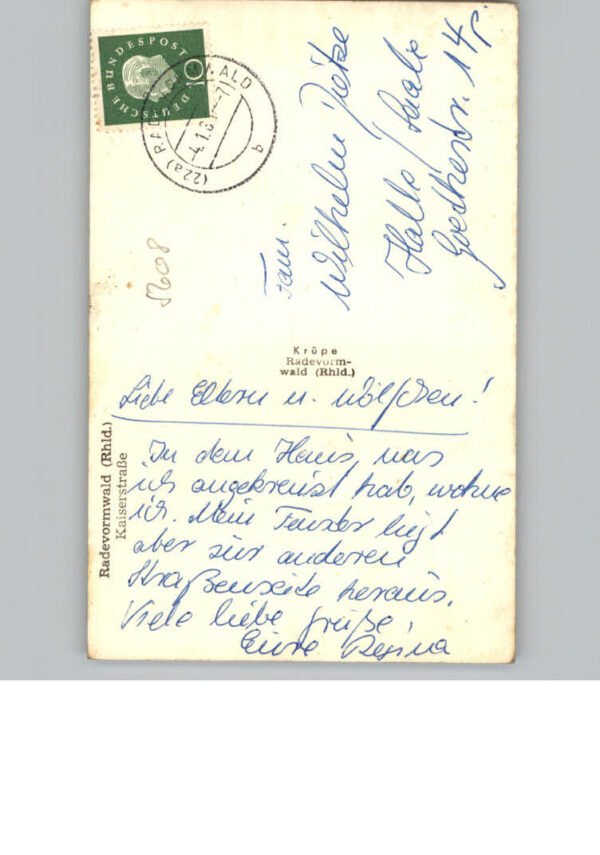 DEUTSCHE BUNDESPOST
10
(22a) RADEVORMWALD
4.1.6
b
Fam.
Wilhelm Dietze
Halle / Saale
Goethestr. 14
5608
Krüpe
Radevorm-
wald (Rhld.)
Radevormwald (Rhld.)
Kaiserstraße
Liebe Eltern u. Wölfchen!
In dem Haus, was
ich angekreuzt hab, wohne
ich. Mein Fenster liegt
aber zur anderen
Straßenseite heraus.
Viele liebe Grüße,
Eure Regina